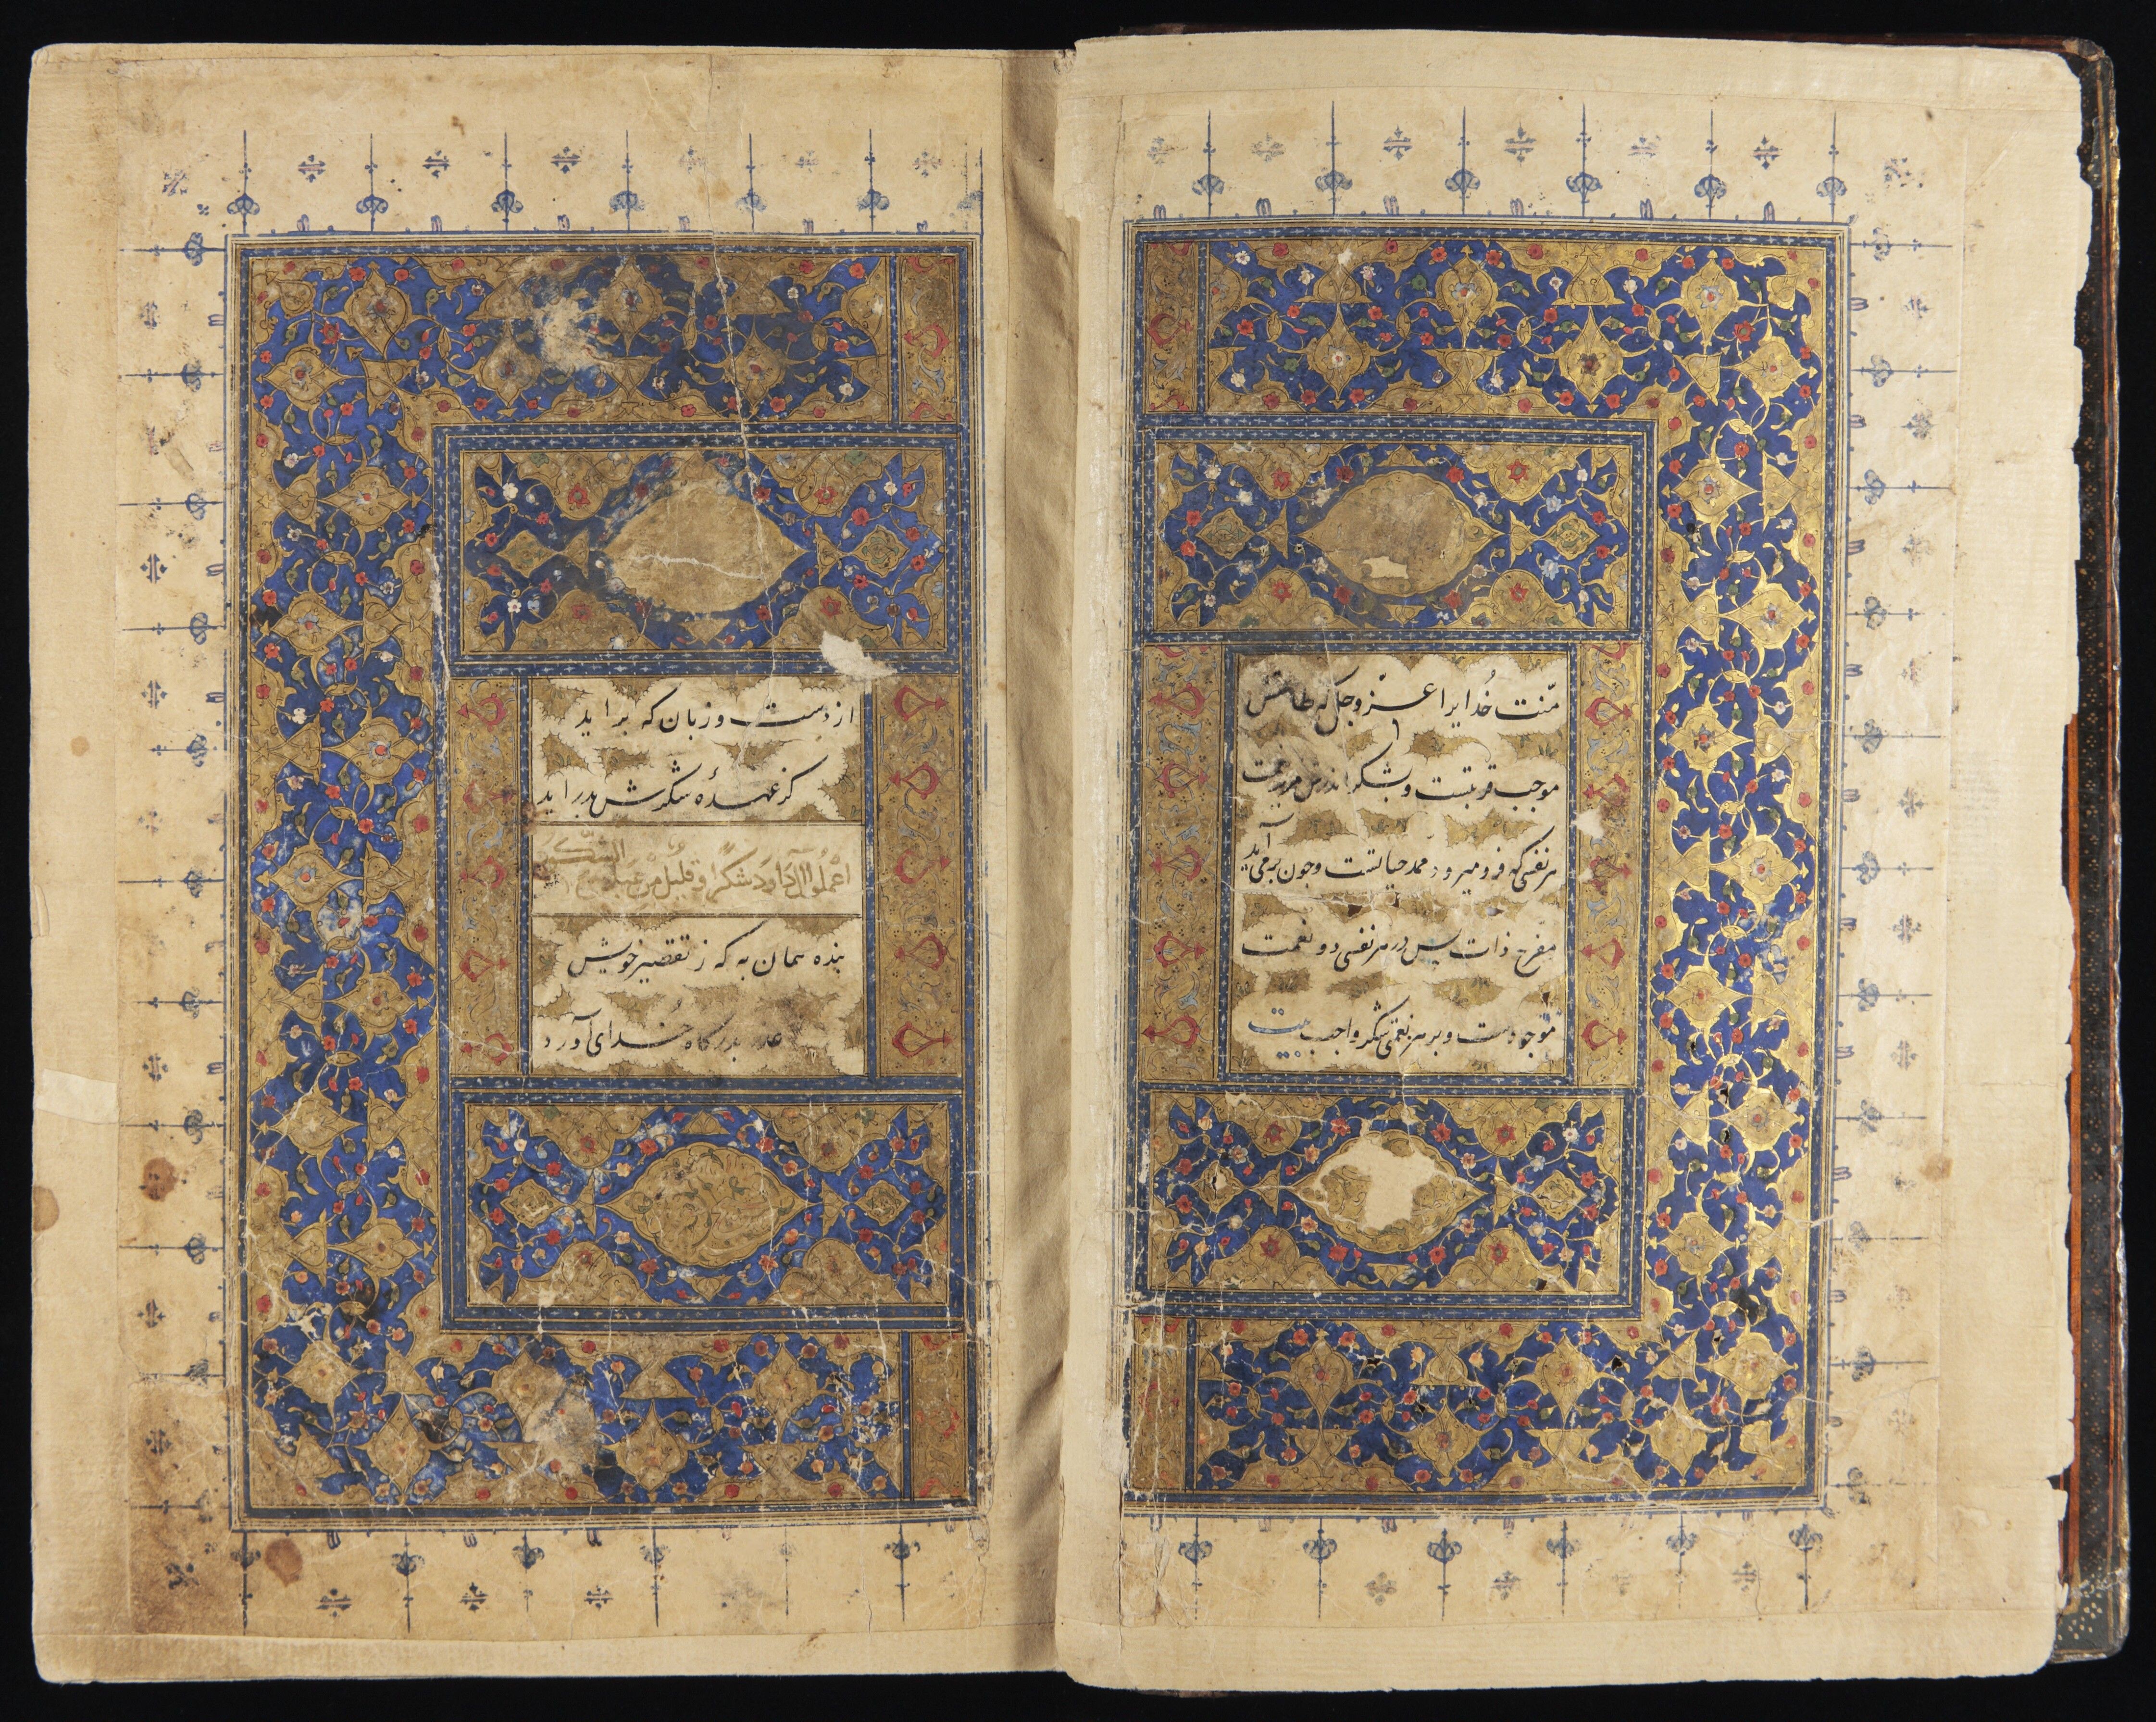 منّت خُدایرا عزّ وجل که طاعتش
موجب قربتست وبشکر اندرش مزید نعمت
هر نفسی که فرو میرود ممد حیاتست وچون برمی آید
مفرح ذات پس در هر نفسی دو نعمت
موجودست و بر هر نعمتی شکر واجب بیت
از دست و زبان که براید
کز عهدهٔ شکرش بدراید
اعْمَلُوا آلَ دَاودَ شکرًا وَقلیلٌ مِنْ عِبَادِیَ الشَّکُور
بنده همان به که ز تقصیر خویش
عذر بدرکاه خُدای آورد